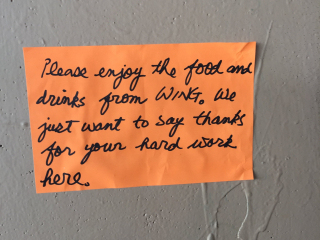 Please enjoy the food and
drinks from WING. We
just want to say thanks
for your hard work
here.